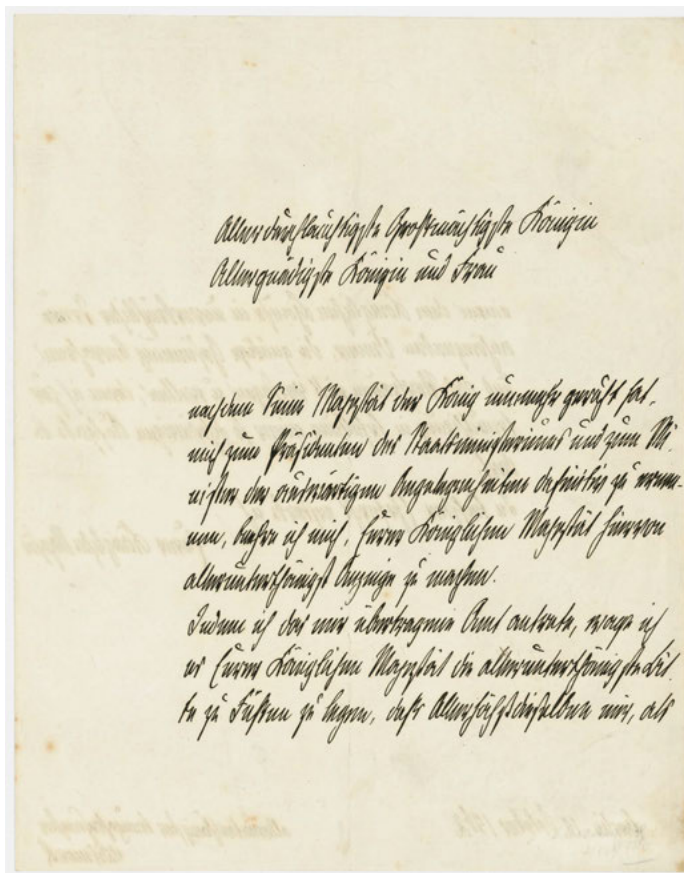 Allerdurchlauchtigste Großmächtigste Königin
Allergnädigste Königin und Frau
nachdem Seine Majestät der König nunmehr geruht hat,
mich zum Präsidenten des Staatsministeriums und zum Mi-
nister der auswärtigen Angelegenheiten definitiv zu ernen-
nen, beehre ich mich, Eurer Königlichen Majestät hiervon
allerunterthänigst Anzeige zu machen.
Indem ich das mir übertragene Amt antrete, wage ich
es Eurer Königlichen Majestät die allerunterthänigste Bit-
te zu Füßen zu legen, daß Allerhöchstdieselben mir, als